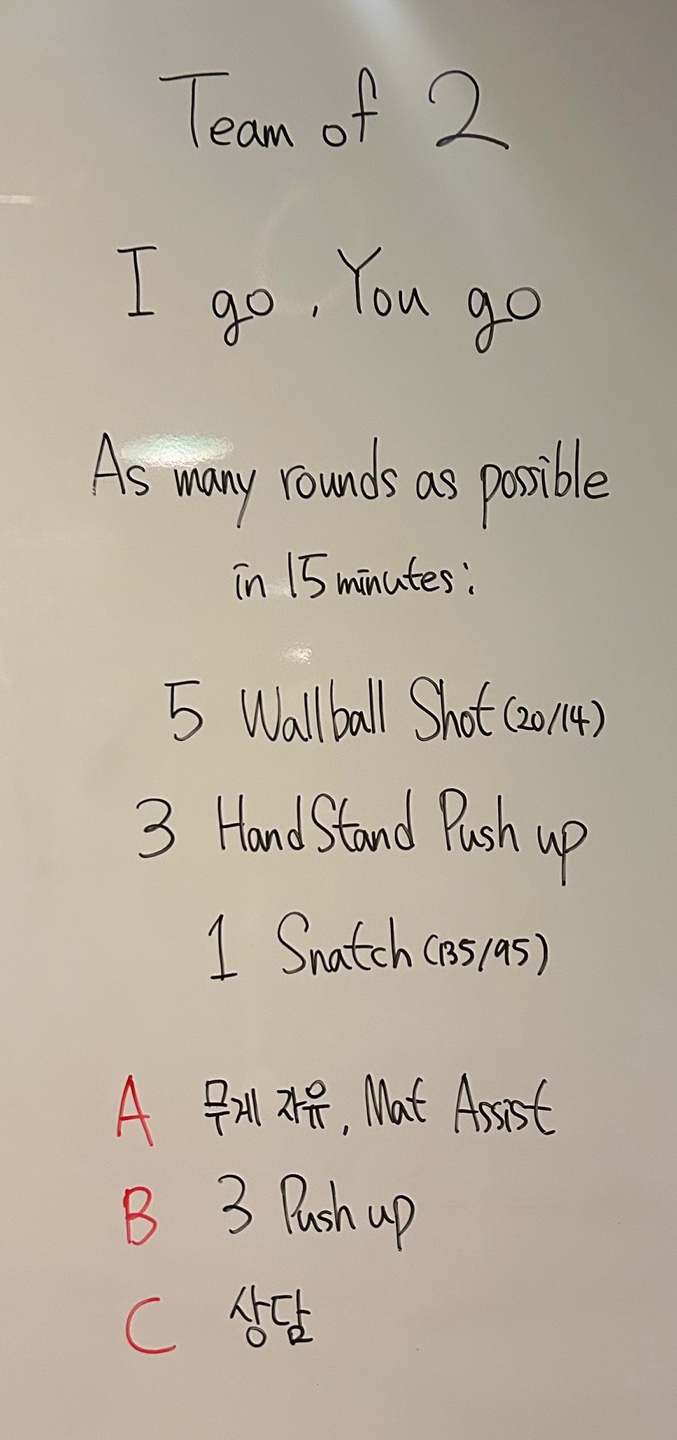 Team of 2
I go, You go
As many rounds as possible
in 15 minutes:
5 Wallball Shot (20/14)
3 HandStand Push up
1 Snatch (135/95)
A 무게 자유, Mat Assist
B 3 Push up
C 상담